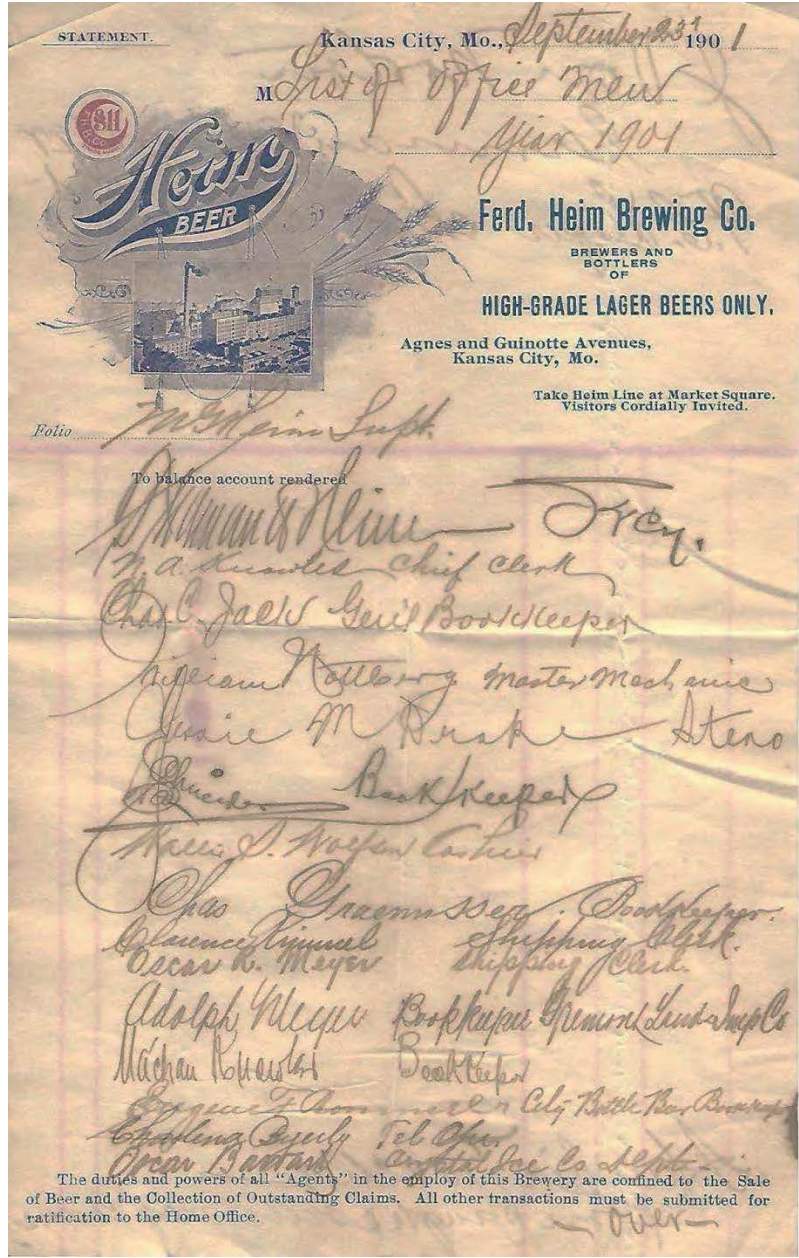 STATEMENT.
Kansas City, Mo., September 23rd 1901
M List of office men
Year 1901
Heim
BEER
Ferd. Heim Brewing Co.
BREWERS AND
BOTTLERS
OF
HIGH-GRADE LAGER BEERS ONLY.
Agnes and Guinotte Avenues,
Kansas City, Mo.
Take Heim Line at Market Square.
Visitors Cordially Invited.
Folio
Heim Supt.
To balance account rendered
Heim Trey.
N. A. Knowles Chief Clerk
Chas. C. Jack Gen'l Bookkeeper
William Master Mechanic
Jessie M Drake Steno
Bookkeeper
Cashier
Chas Bookkeeper.
Clarence Kimmel Shipping Clerk.
Oscar R. Meyer Shipping Clerk.
Adolph Meyer Bookkeeper Fremont Land & Imp Co
Knowles Bookkeeper
Eugene F City Bottle Beer
Byerly Tel Oper.
Oscar Crystal Ice Co Dept.
The duties and powers of all "Agents" in the employ of this Brewery are confined to the Sale
of Beer and the Collection of Outstanding Claims. All other transactions must be submitted for
ratification to the Home Office.
— over —